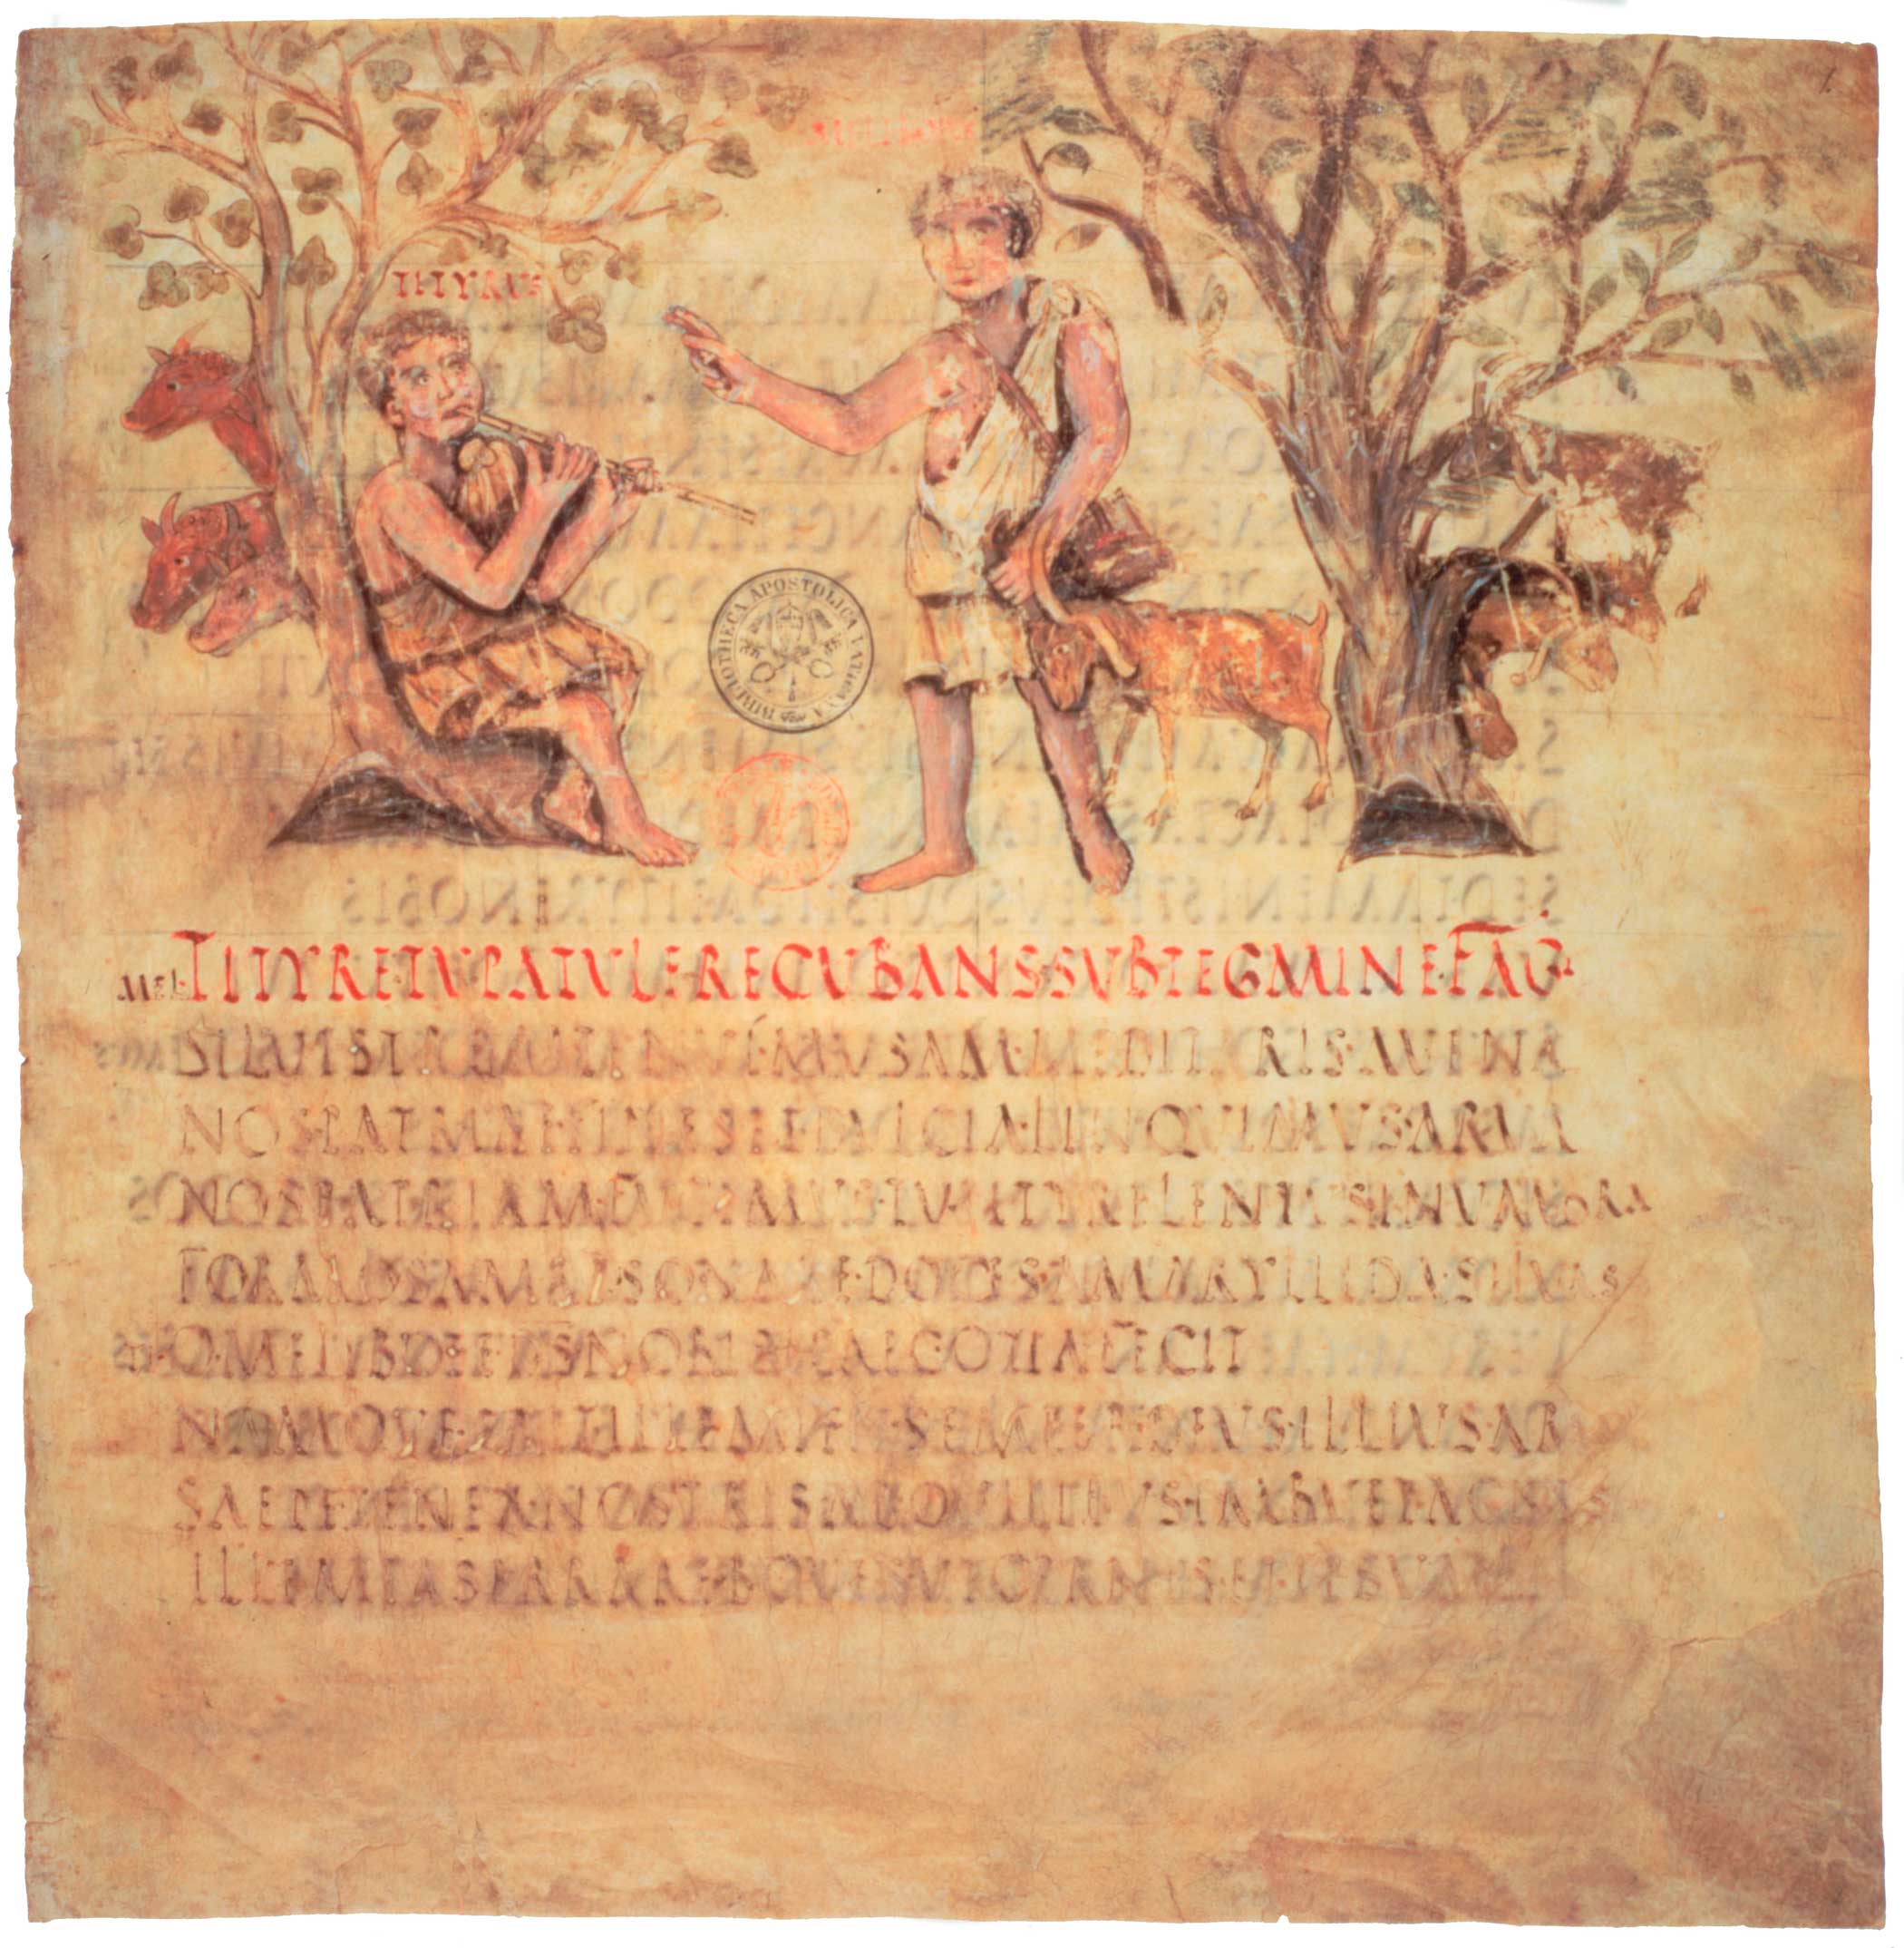 TITYRVS
BIBLIOTHECA APOSTOLICA VATICANA
MEL TITYRE TV PATVLE RECVBANS SVB TEGMINE FAGI
SILVESTREM TENVI MVSAM MEDITARIS AVENA
NOS PATRIAE FINES ET DVLCIA LINQVIMVS ARVA
NOS PATRIAM FVGIMVS TV TITYRE LENTVS IN VMBRA
FORMOSAM RESONARE DOCES AMARYLLIDA SILVAS
O MELIBOEE DEVS NOBIS HAEC OTIA FECIT
NAMQVE ERIT ILLE MIHI SEMPER DEVS ILLIVS AR
SAEPE TENER NOSTRIS AB OVILIBVS IMBVET AGNVS
ILLE MEAS ERRARE BOVES VT CERNIS ET IPSVM